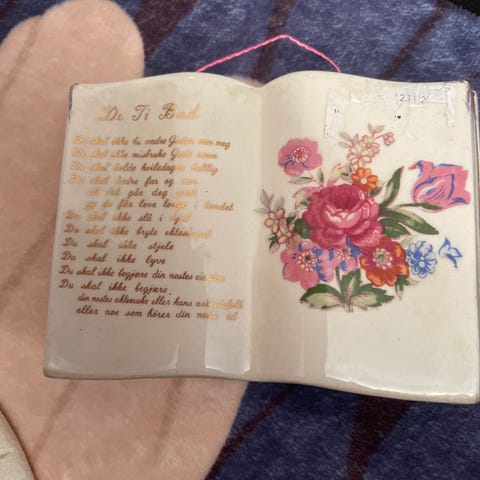 De Ti Bud
Du skal ikke ha andre Guder enn meg
Du skal ikke misbruke Guds navn
Du skal holde hviledagen hellig
Du skal hedre far og mor
så det går deg godt
og du får leve lenge i landet
Du skal ikke slå i hjel
Du skal ikke bryte ekteskapet
Du skal ikke stjele
Du skal ikke lyve
Du skal ikke begjære din nestes eiendom
Du skal ikke begjære
din nestes ektemake eller hans arbeidsfolk
eller noe som hörer din neste til